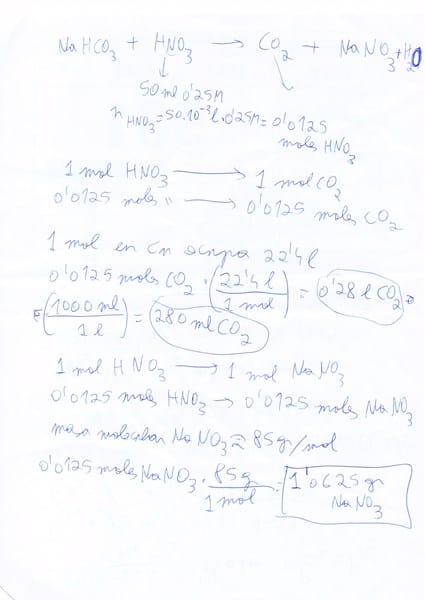 NaHCO3 + HNO3 → CO2 + NaNO3 + H2O
50 ml 0'25M
n HNO3 = 50.10^-3 l . 0'25M = 0'0125
moles HNO3
1 mol HNO3 → 1 mol CO2
0'0125 moles " → 0'0125 moles CO2
1 mol en cn ocupa 22'4 l
0'0125 moles CO2 . (22'4 l / 1 mol) = 0'28 l CO2
(1000 ml / 1 l) = 280 ml CO2
1 mol HNO3 → 1 mol NaNO3
0'0125 moles HNO3 → 0'0125 moles NaNO3
masa molecular NaNO3 ≈ 85 gr/mol
0'0125 moles NaNO3 . 85g / 1 mol = 1'0625 gr
NaNO3